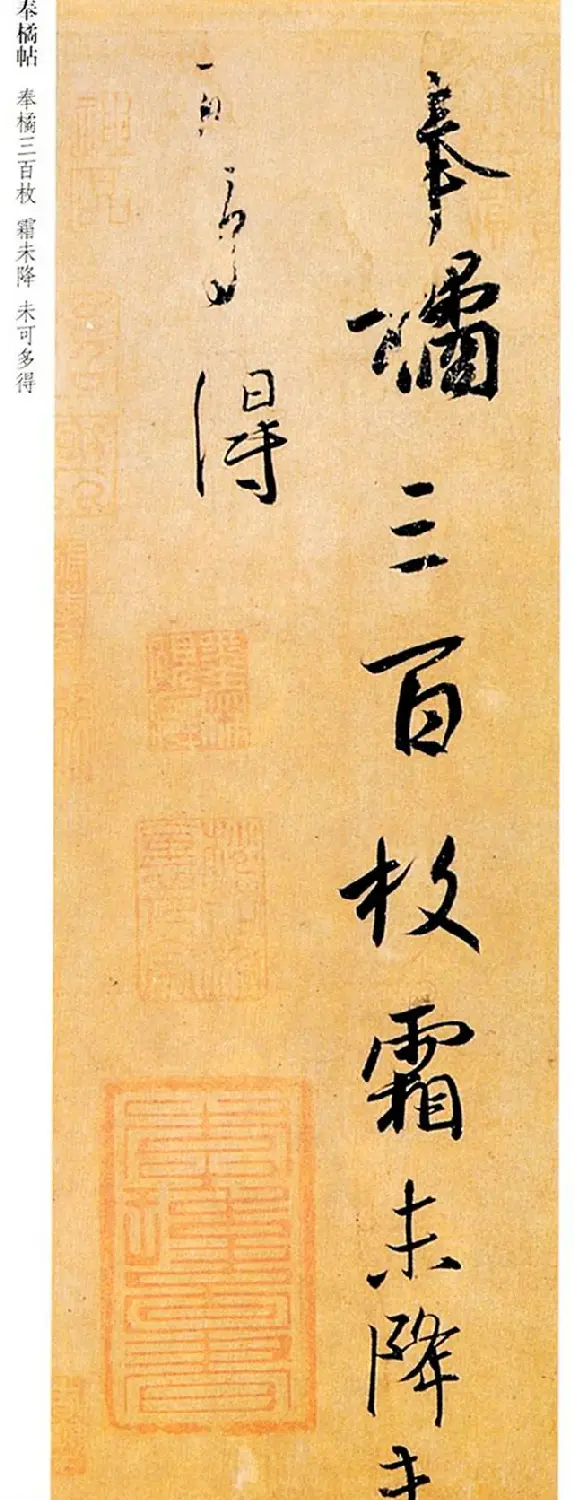 奉橘帖 奉橘三百枚 霜未降 未可多得
奉橘三百枚霜未降未
可多得